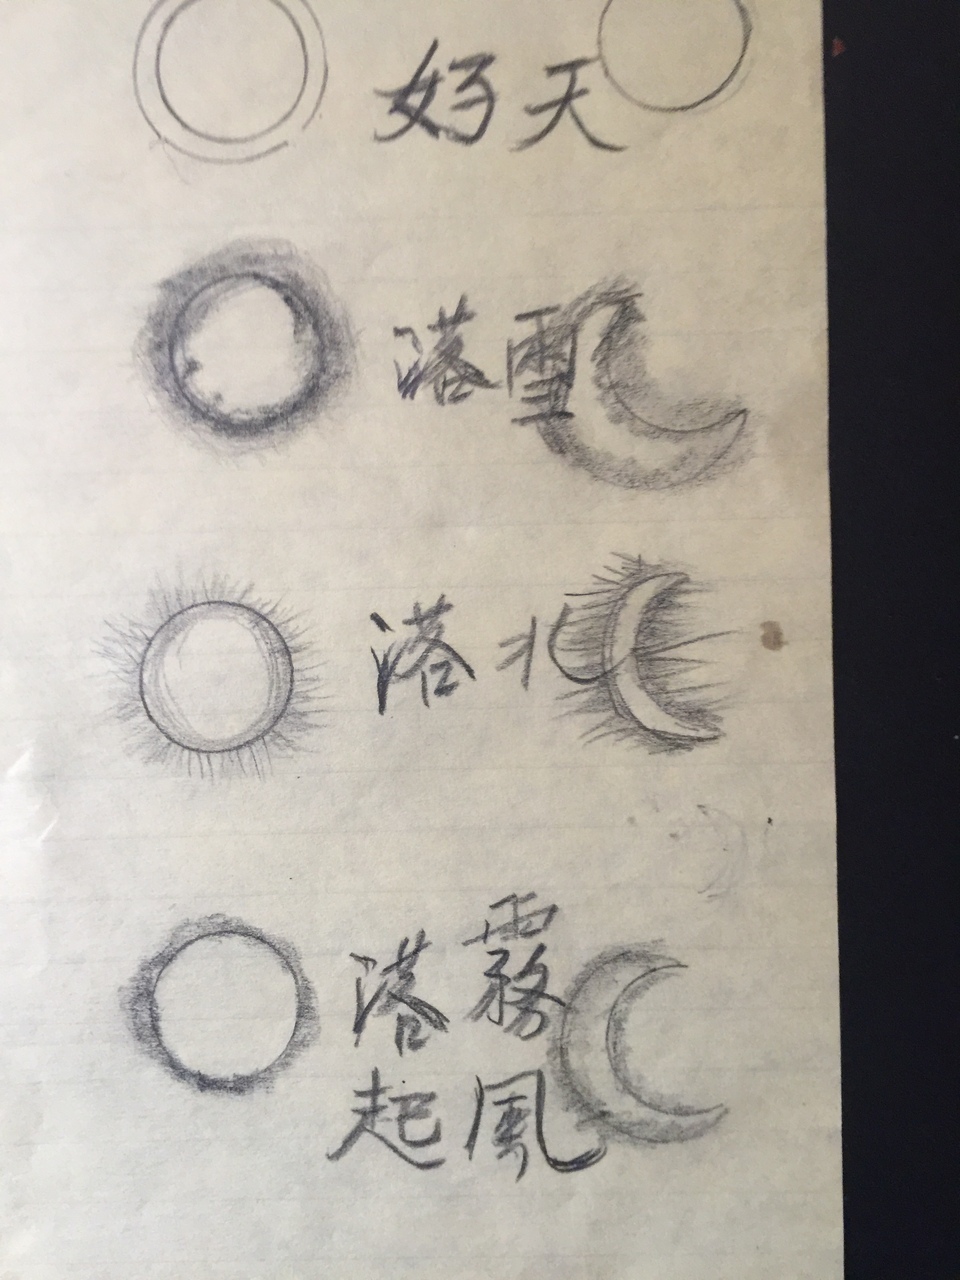 好天
落雪
落北
落霧
起風